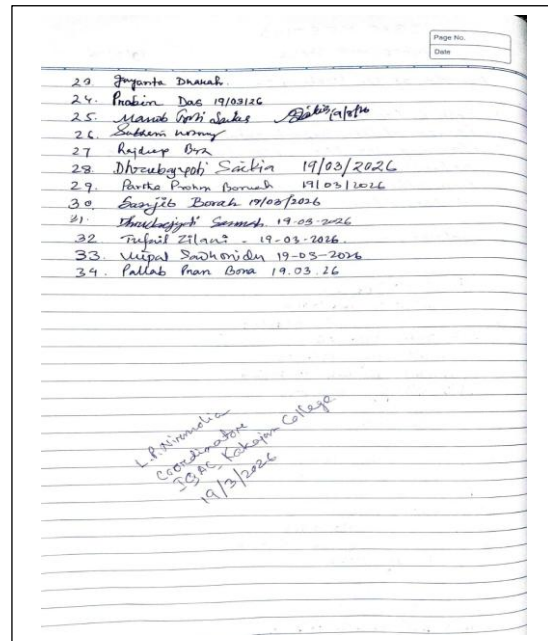 Page No.
Date
23. Jyanta Dharah.
24. Prabin Das 19/03/26
25. Manab
26.
27 Rajdeep Bora
28. Dhrubajyoti Saikia 19/03/2026
29. Partha Pratim Boruah 19/03/2026
30. Sanjib Borah 19/03/2026
31. Dhrubajyoti Sarmah 19-03-2026
32 Tufail Zilani - 19-03-2026.
33. 19-03-2026
34. Pallab Pran Bora 19.03.26
L.P. Niramolia
Coordinator
IQAC, Kakajan College
19/3/2026